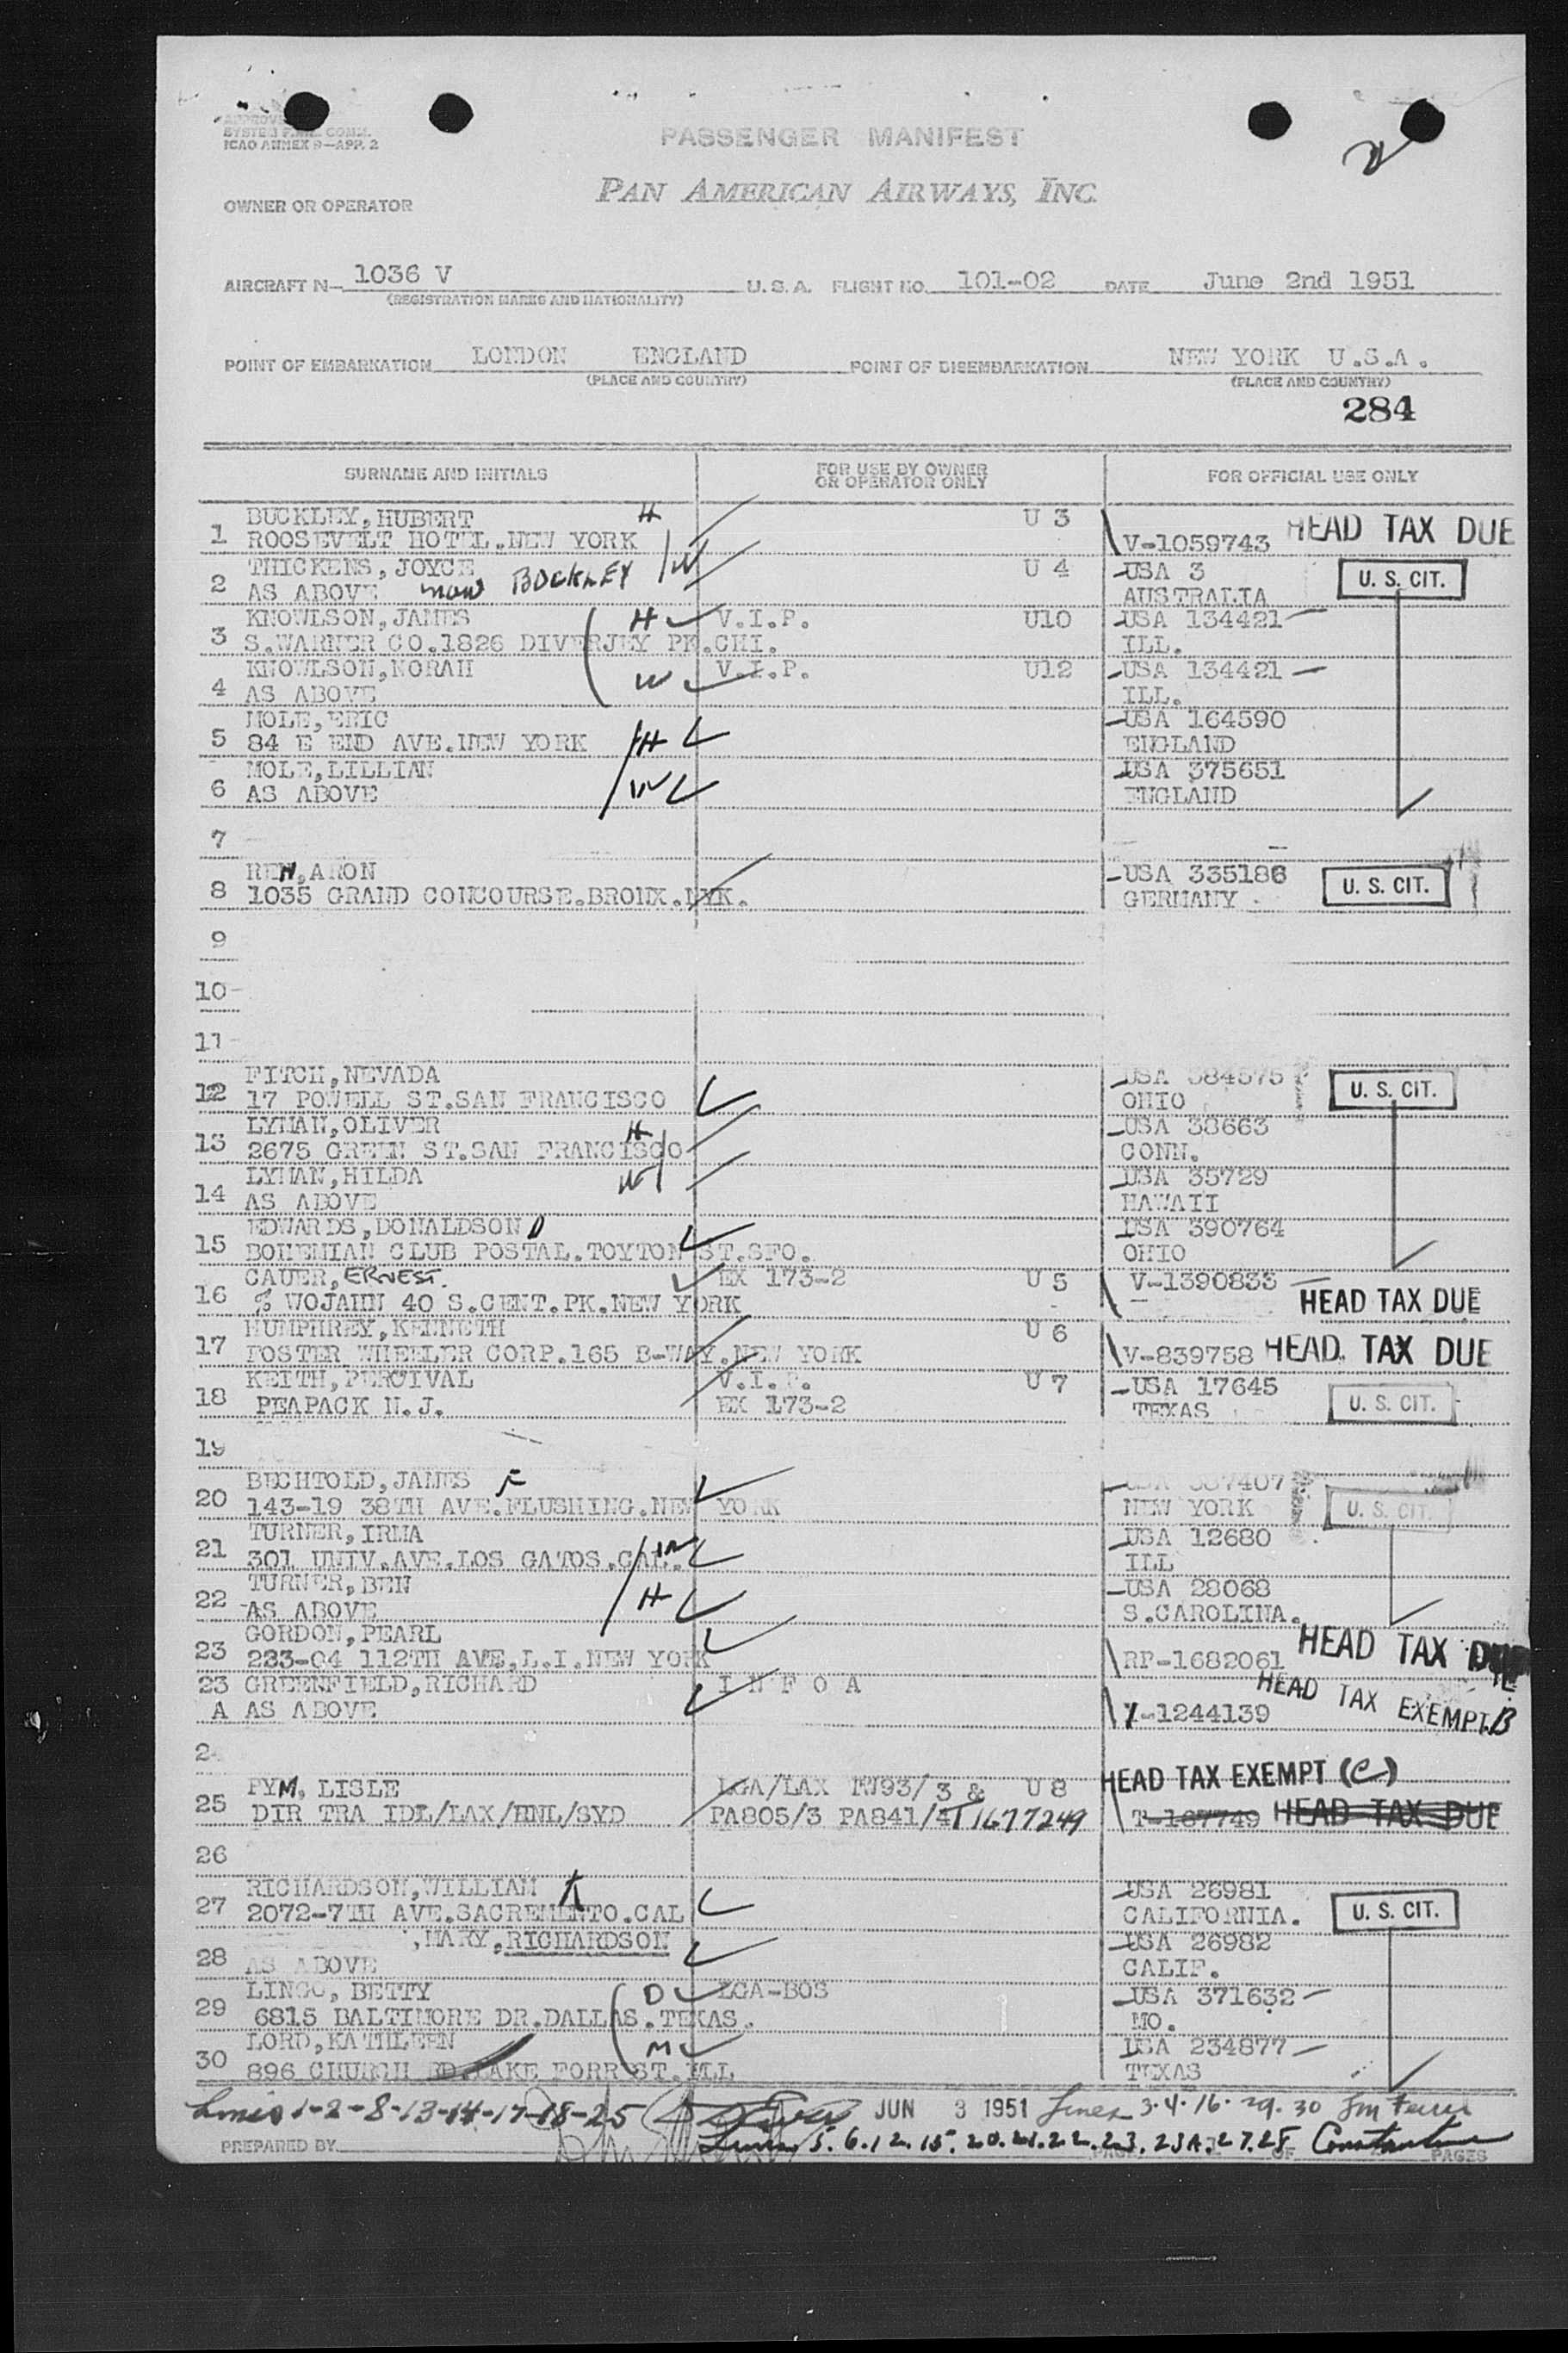 2
APPROVE
SYSTEM FAL. COMM.
ICAO ANNEX 9—APP. 2
PASSENGER MANIFEST
OWNER OR OPERATOR PAN AMERICAN AIRWAYS, INC.
AIRCRAFT N— 1036 V U.S.A. FLIGHT NO. 101-02 DATE June 2nd 1951
(REGISTRATION MARKS AND NATIONALITY)
POINT OF EMBARKATION LONDON ENGLAND POINT OF DISEMBARKATION NEW YORK U.S.A.
(PLACE AND COUNTRY) (PLACE AND COUNTRY)
284
SURNAME AND INITIALS FOR USE BY OWNER OR OPERATOR ONLY FOR OFFICIAL USE ONLY
BUCKLEY,HUBERT H U 3 HEAD TAX DUE
1 ROOSEVELT HOTEL.NEW YORK V-1059743
THICKENS,JOYCE W U 4 USA 3 U. S. CIT.
2 AS ABOVE now BUCKLEY AUSTRALIA
KNOWLSON,JAMES H V.I.P. U10 USA 134421
3 S.WARNER CO.1826 DIVERJEY PK.CHI. ILL.
KNOWLSON,NORAH W V.I.P. U12 USA 134421
4 AS ABOVE ILL.
MOLE,ERIC USA 164590
5 84 E END AVE.NEW YORK H ENGLAND
MOLE,LILLIAN USA 375651
6 AS ABOVE W ENGLAND
7
REN,ARON USA 335186
8 1035 GRAND CONCOURSE.BRONX.NYK. GERMANY U. S. CIT.
9
10
11
FITCH,NEVADA USA 384575 U. S. CIT.
12 17 POWELL ST.SAN FRANCISCO OHIO
LYMAN,OLIVER H USA 38663
13 2675 GREEN ST.SAN FRANCISCO CONN.
LYMAN,HILDA W USA 35729
14 AS ABOVE HAWAII
EDWARDS,DONALDSON D USA 390764
15 BOHEMIAN CLUB POSTAL.TOYTON ST.SFO. OHIO
CAUER,ERNEST. EX 173-2 U 5 V-1390833
16 % WOJAHN 40 S.CENT.PK.NEW YORK HEAD TAX DUE
HUMPHREY,KENNETH U 6
17 FOSTER WHEELER CORP.165 B-WAY.NEW YORK V-839758 HEAD TAX DUE
KEITH,PERCIVAL V.I.P. U 7 USA 17645
18 PEAPACK N.J. EX 173-2 TEXAS U. S. CIT.
19
BECHTOLD,JAMES F 387407
20 143-19 38TH AVE.FLUSHING.NEW YORK NEW YORK U. S. CIT.
TURNER,IRMA USA 12680
21 301 UNIV.AVE.LOS GATOS.CAL. W ILL
TURNER,BEN H USA 28068
22 AS ABOVE S.CAROLINA.
GORDON,PEARL HEAD TAX DUE
23 223-04 112TH AVE.L.I.NEW YORK RP-1682061
23 GREENFIELD,RICHARD I N F O A HEAD TAX EXEMPT.B
A AS ABOVE V-1244139
24
PYM, LISLE LGA/LAX TW93/3 & U 8 HEAD TAX EXEMPT (C)
25 DIR TRA IDL/LAX/HNL/SYD PA805/3 PA841/4 T1677249 T-167749 HEAD TAX DUE
26
RICHARDSON,WILLIAM A USA 26981
27 2072-7TH AVE.SACREMENTO.CAL CALIFORNIA. U. S. CIT.
,MARY,RICHARDSON USA 26982
28 AS ABOVE CALIF.
LINGO, BETTY D LGA-BOS USA 371632
29 6815 BALTIMORE DR.DALLAS.TEXAS. MO.
LORD,KATHLEEN M USA 234877
30 896 CHURCH RD.LAKE FORREST.ILL TEXAS
Lines 1-2-8-13-14-17-18-25 JUN 3 1951 Lines 3.4.16.29.30
Lines 5.6.12.15.20.21.22.23.23A.27.28 Constantine
PREPARED BY PAGE OF PAGES